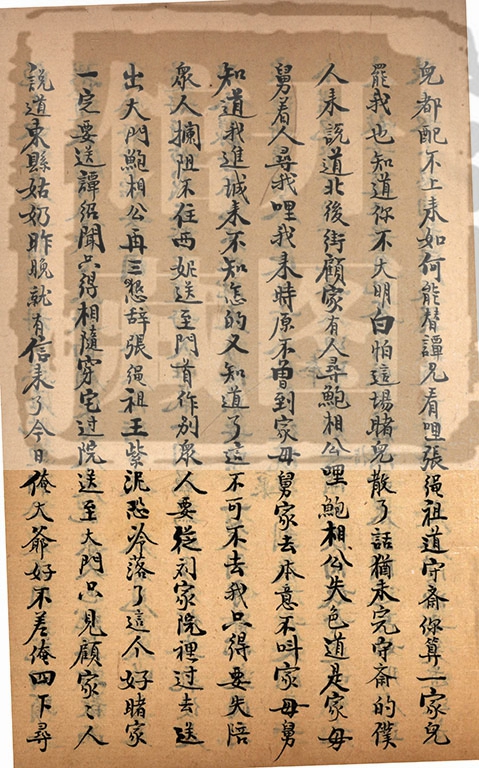 兒都配不上来如何能替譚兄看哩張繩祖道守斎你算一家兒
罷我也知道你不大明白怕這場賭兒散了話猶未完守斎的僕
人来說道北後街顧家有人尋鮑相公哩鮑相公失色道是家母
舅着人尋我哩我来時原不曾到家母舅家去本意不呌家母舅
知道我進城来不知怎的又知道了這不可不去我只得要失陪
衆人攔阻不住西妮送至門首作別衆人要従刘家院裡过去送
出大門鮑相公再三懇辞張繩祖王紫泥恐冷落了這个好賭家
一定要送譚紹聞只得相隨穿宅过院送至大門只見顧家〻人
說道東縣姑奶昨晚就有信来了今日俺大爺好不差俺四下尋